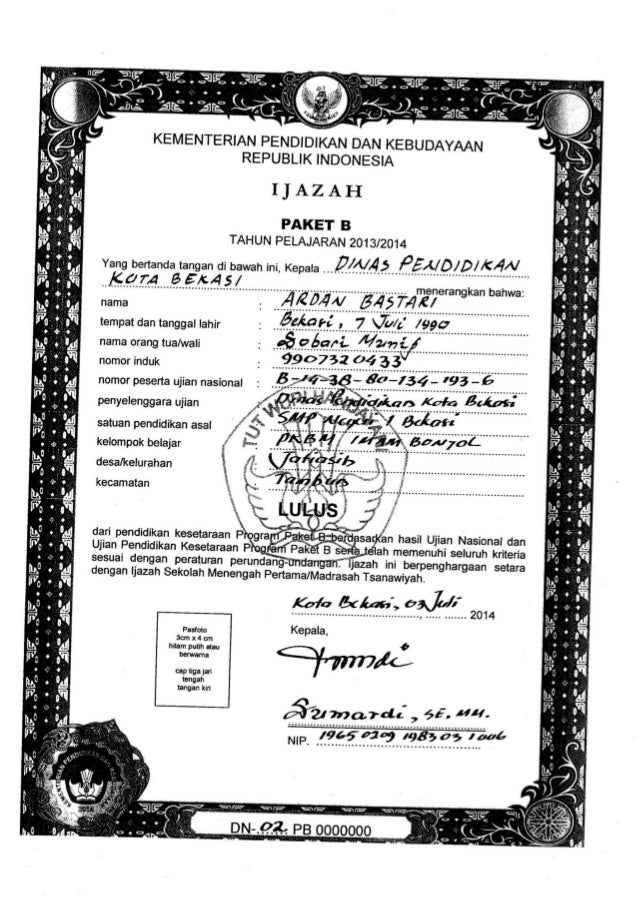 KEMENTERIAN PENDIDIKAN DAN KEBUDAYAAN
REPUBLIK INDONESIA
IJAZAH
PAKET B
TAHUN PELAJARAN 2013/2014
Yang bertanda tangan di bawah ini, Kepala DINAS PENDIDIKAN
KOTA BEKASI menerangkan bahwa:
nama : ARDAN BASTARI
tempat dan tanggal lahir : Bekasi, 7 Juli 1990
nama orang tua/wali : Sobari Munif
nomor induk : 9907320433
nomor peserta ujian nasional : B-14-38-80-134-193-6
penyelenggara ujian : Dinas Pendidikan Kota Bekasi
satuan pendidikan asal : SMP Negeri 1 Bekasi
kelompok belajar : PKBM IMAM BONJOL
desa/kelurahan : Jatiasih
kecamatan : Tambun
TUT WURI HANDAYANI
LULUS
dari pendidikan kesetaraan Program Paket B berdasarkan hasil Ujian Nasional dan
Ujian Pendidikan Kesetaraan Program Paket B serta telah memenuhi seluruh kriteria
sesuai dengan peraturan perundang-undangan. Ijazah ini berpenghargaan setara
dengan Ijazah Sekolah Menengah Pertama/Madrasah Tsanawiyah.
Kota Bekasi, 03 Juli 2014
Kepala,
Pasfoto
3cm x 4 cm
hitam putih atau
berwarna
cap tiga jari
tengah
tangan kiri
Sumardi, SE. MM.
NIP. 1965 0209 1983 03 1006
KEMENTERIAN PENDIDIKAN
2014
DN- 02 PB 0000000